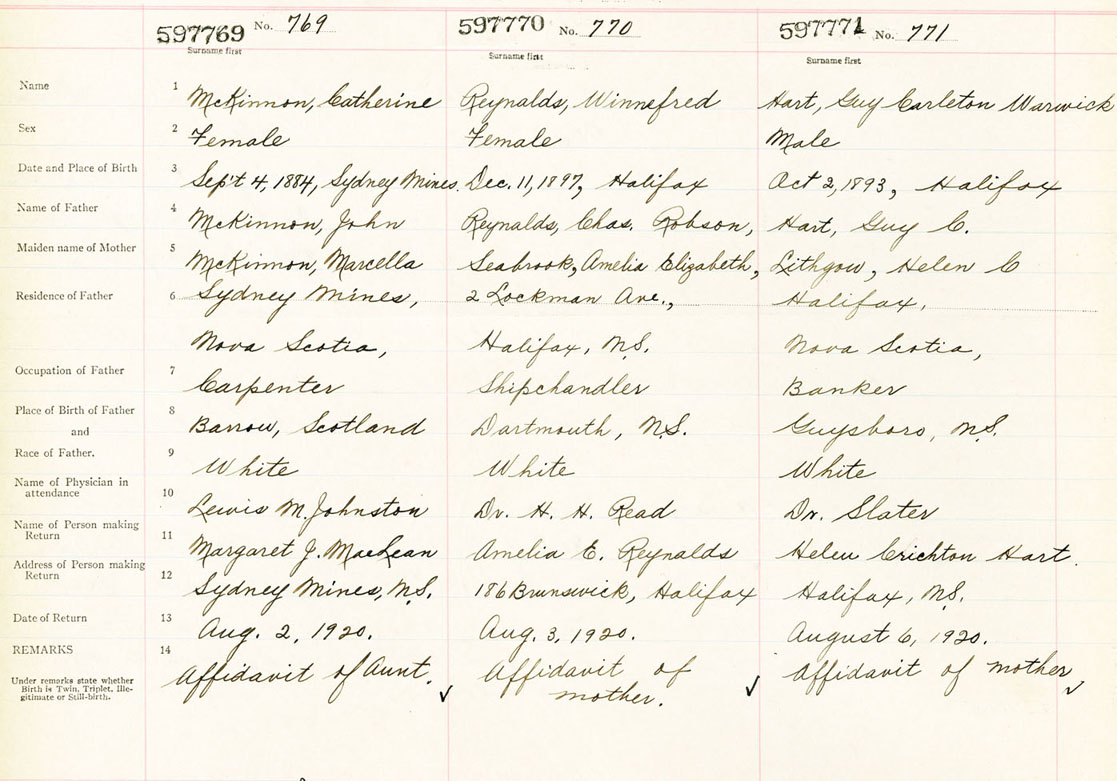 597769 No. 769 597770 No. 770 597771 No. 771
Surname first Surname first Surname first
Name 1 McKinnon, Catherine Reynalds, Winnefred Hart, Guy Carleton Warwick
Sex 2 Female Female Male
Date and Place of Birth 3 Sep't 4, 1884, Sydney Mines. Dec. 11, 1897, Halifax Oct 2, 1893, Halifax
Name of Father 4 McKinnon, John Reynalds, Chas. Robson, Hart, Guy C.
Maiden name of Mother 5 McKinnon, Marcella Seabrook, Amelia Elizabeth, Lithgow, Helen C
Residence of Father 6 Sydney Mines, 2 Lockman Ave., Halifax,
Nova Scotia, Halifax, N.S. Nova Scotia,
Occupation of Father 7 Carpenter Shipchandler Banker
Place of Birth of Father 8 Barrow, Scotland Dartmouth, N.S. Guysboro, N.S.
and
Race of Father. 9 White White White
Name of Physician in
attendance 10 Lewis M. Johnston Dr. H. H. Read Dr. Slater
Name of Person making
Return 11 Margaret J. MacLean Amelia E. Reynalds Helen Crichton Hart.
Address of Person making
Return 12 Sydney Mines, N.S. 186 Brunswick, Halifax Halifax, N.S.
Date of Return 13 Aug. 2, 1920. Aug. 3, 1920. August 6, 1920.
REMARKS 14 Affidavit of Aunt. Affidavit of Affidavit of mother
mother.
Under remarks state whether
Birth is Twin, Triplet, Ille-
gitimate or Still-birth.